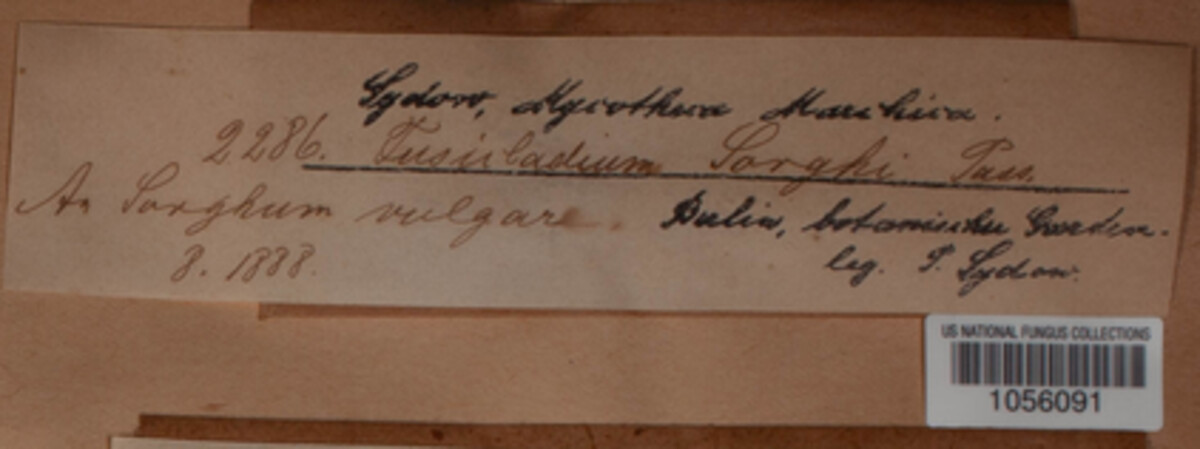 Sydow, Mycotheca Marchica.
2286. Fusicladium Sorghi Pass.
An Sorghum vulgare. Berlin, botanischer Garten.
8. 1888. leg. P. Sydow.
US NATIONAL FUNGUS COLLECTIONS
1056091